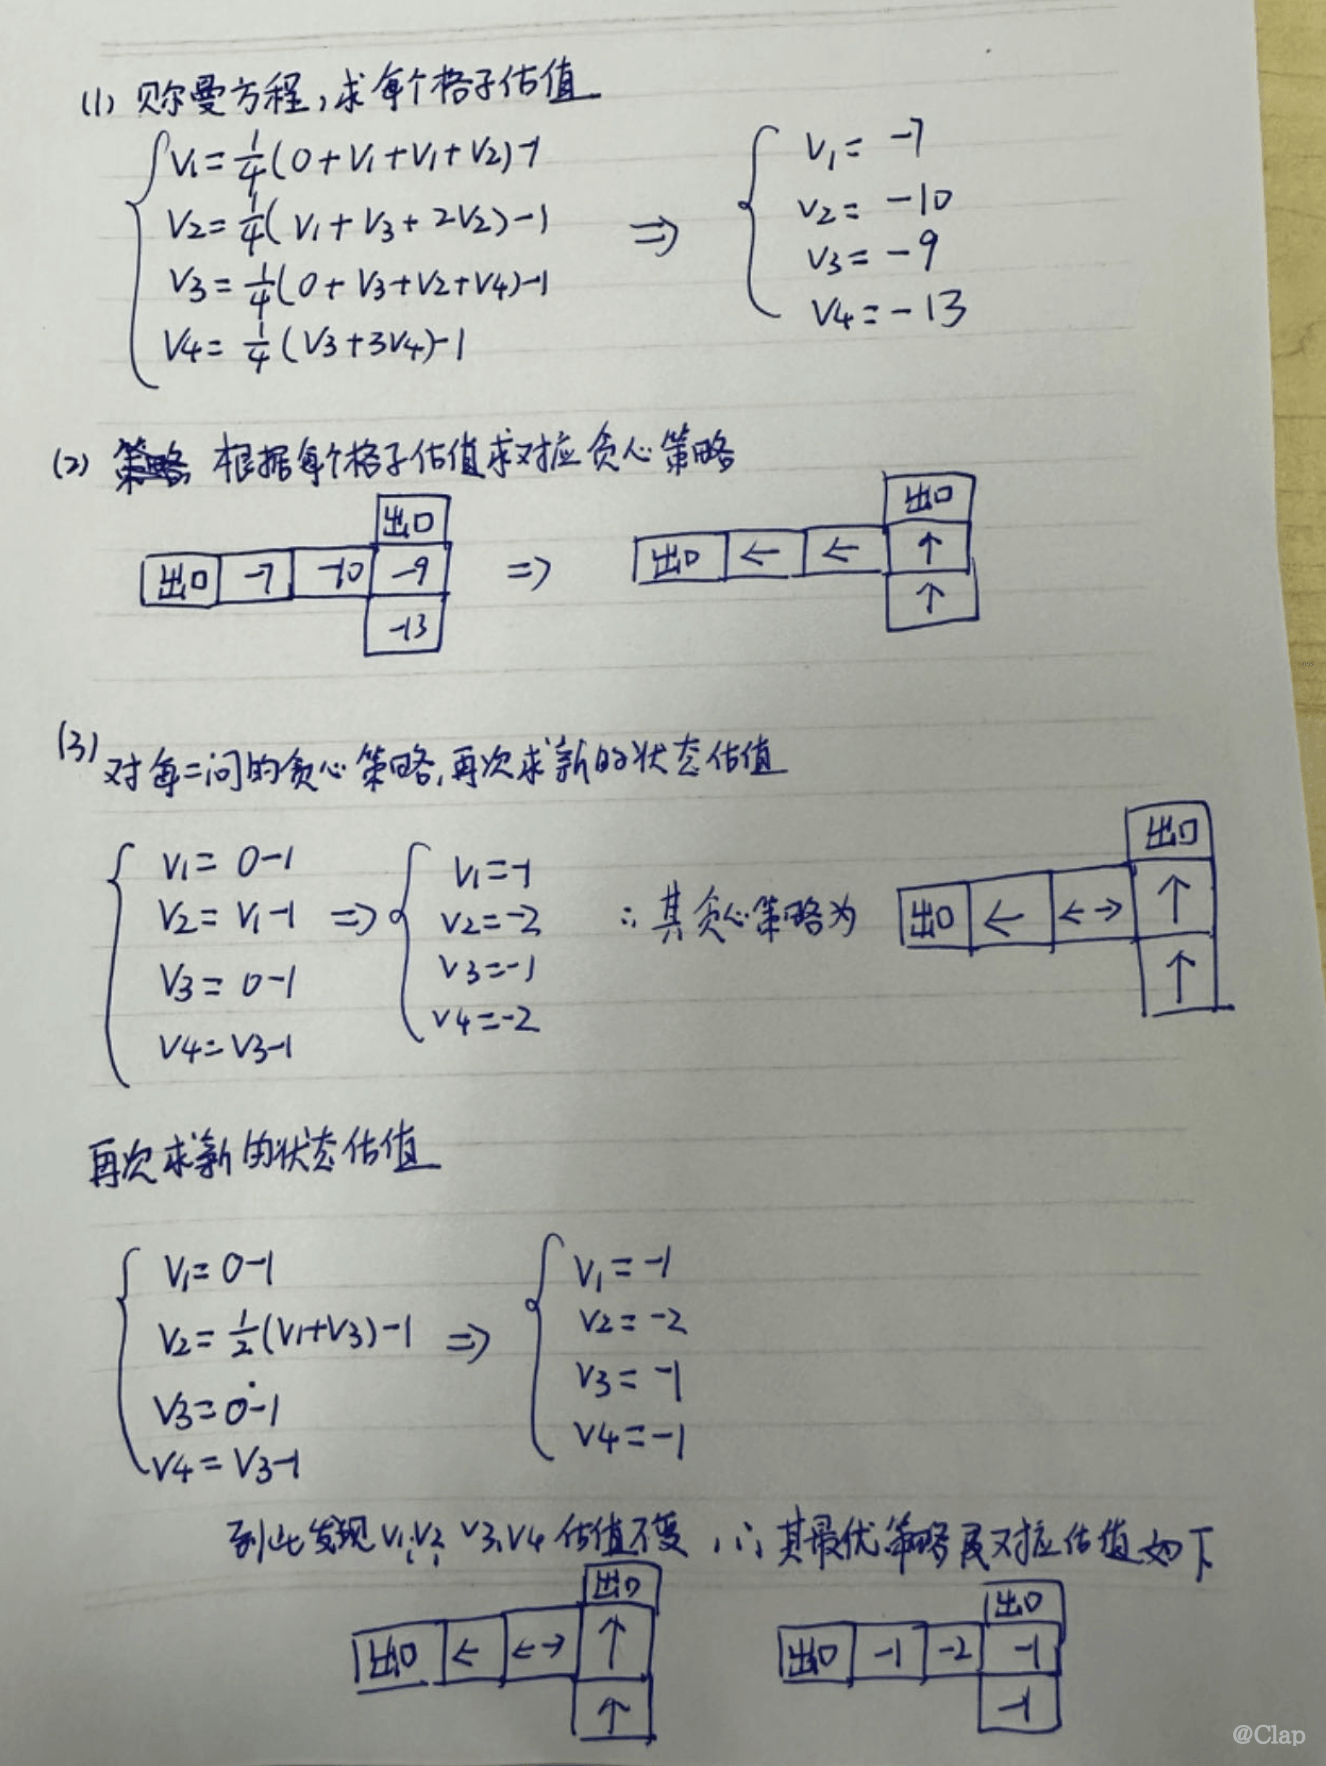 (1) 贝尔曼方程,求每个格子估值
V1=1/4(0+V1+V1+V2)-1
V2=1/4(V1+V3+2V2)-1
V3=1/4(0+V3+V2+V4)-1
V4=1/4(V3+3V4)-1
⇒
V1=-7
V2=-10
V3=-9
V4=-13
(2) 根据每个格子估值求对应贪心策略
出口
出口 -7 -10 -9
-13
⇒
出口
出口 ← ← ↑
↑
(3) 对每二问的贪心策略,再次求新的状态估值
V1=0-1
V2=V1-1
V3=0-1
V4=V3-1
⇒
V1=-1
V2=-2
V3=-1
V4=-2
∴其贪心策略为
出口
出口 ← ←→ ↑
↑
再次求新的状态估值
V1=0-1
V2=1/2(V1+V3)-1
V3=0-1
V4=V3-1
⇒
V1=-1
V2=-2
V3=-1
V4=-1
到此发现V1,V2,V3,V4估值不变,∴其最优策略及对应估值如下
出口
出口 ← ←→ ↑
↑
出口
出口 -1 -2 -1
-1
@Clap